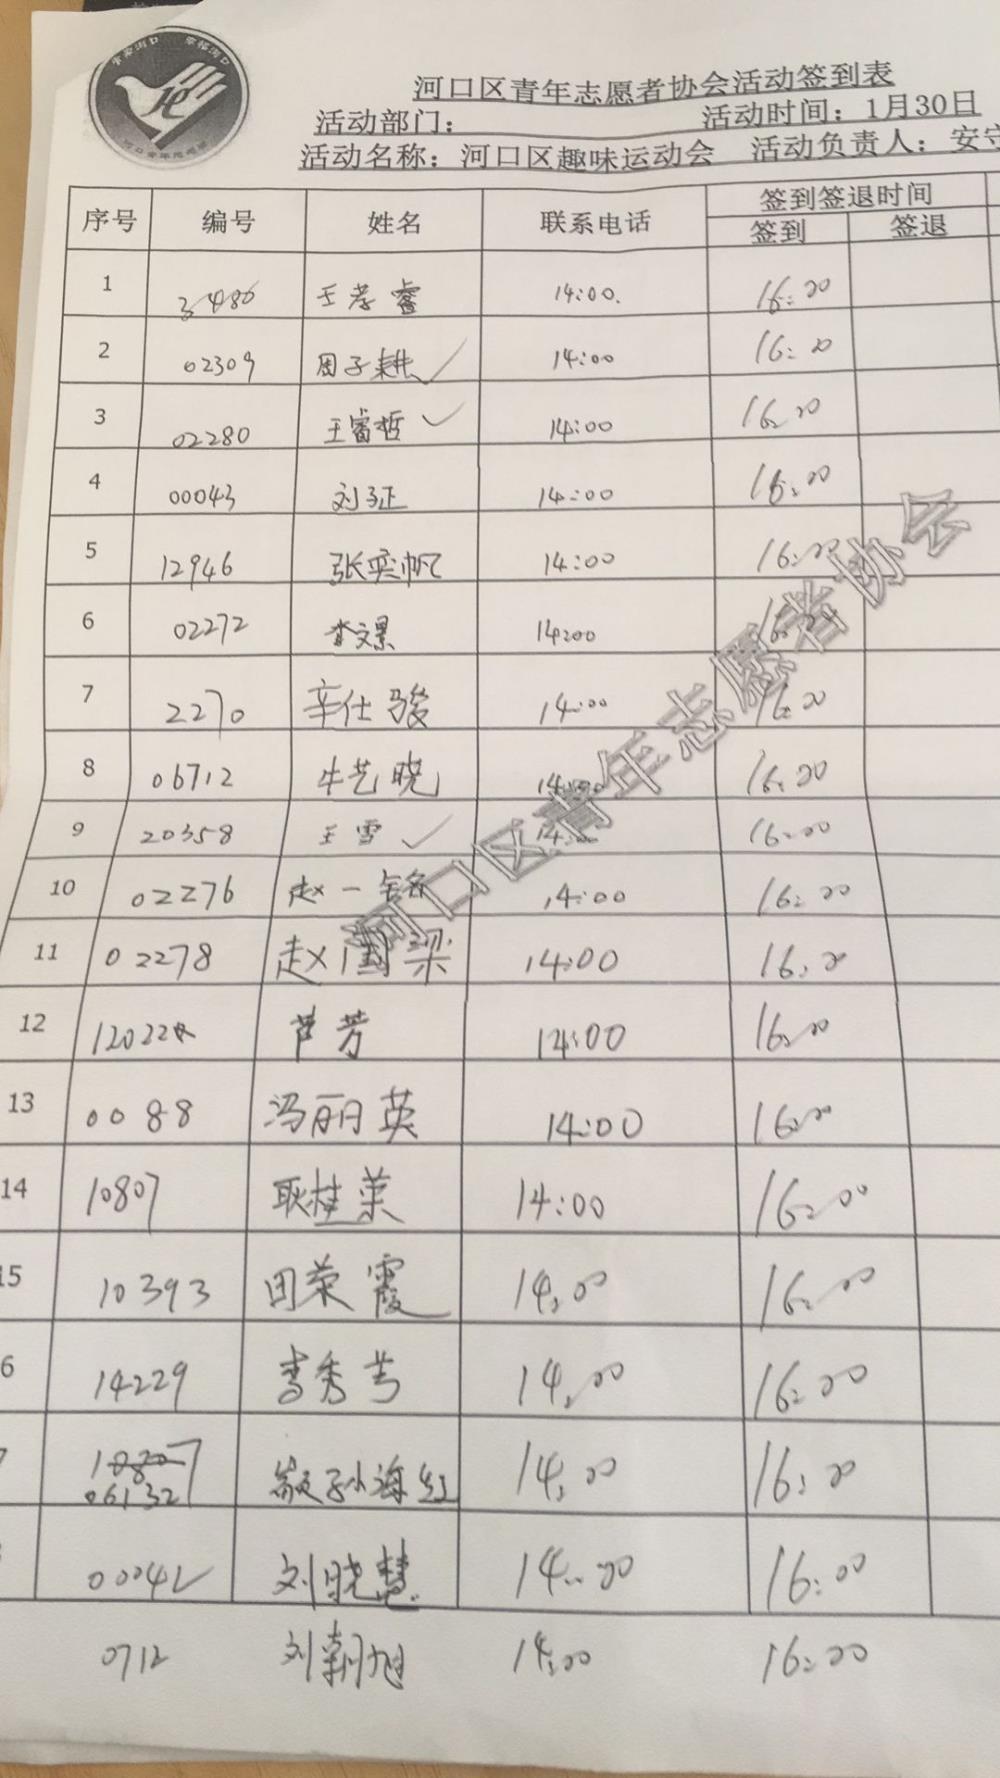 幸福河口
河口区青年志愿者协会活动签到表
活动部门： 活动时间：1月30日
活动名称：河口区趣味运动会 活动负责人：安守
序号 编号 姓名 联系电话 签到签退时间
签到 签退
1 王孝睿 14:00. 16:00
2 02309 周子耕 ✓ 14:00 16:00
3 02280 王睿哲 ✓ 14:00 16:00
4 00043 刘子征 14:00 16:00
5 12946 张奕帆 14:00 16:00
6 02272 李文景 14:00
7 2270 辛仕骏 14:00 16:00
8 06712 牛艺晓 14:00 16:00
9 20358 王雪 ✓ 14:00 16:00
10 02276 赵一 14:00 16:00
11 02278 赵国梁 14:00 16:00
12 芦芳 14:00 16:00
13 0088 冯丽英 14:00 16:00
14 10807 耿桂荣 14:00 16:00
15 10393 田荣霞 14:00 16:00
6 14229 李秀芳 14:00 16:00
7 06132 孙海红 14:00 16:00
00042 刘晓慧 14:00 16:00
0712 刘朝旭 14:00 16:00
河口区青年志愿者协会